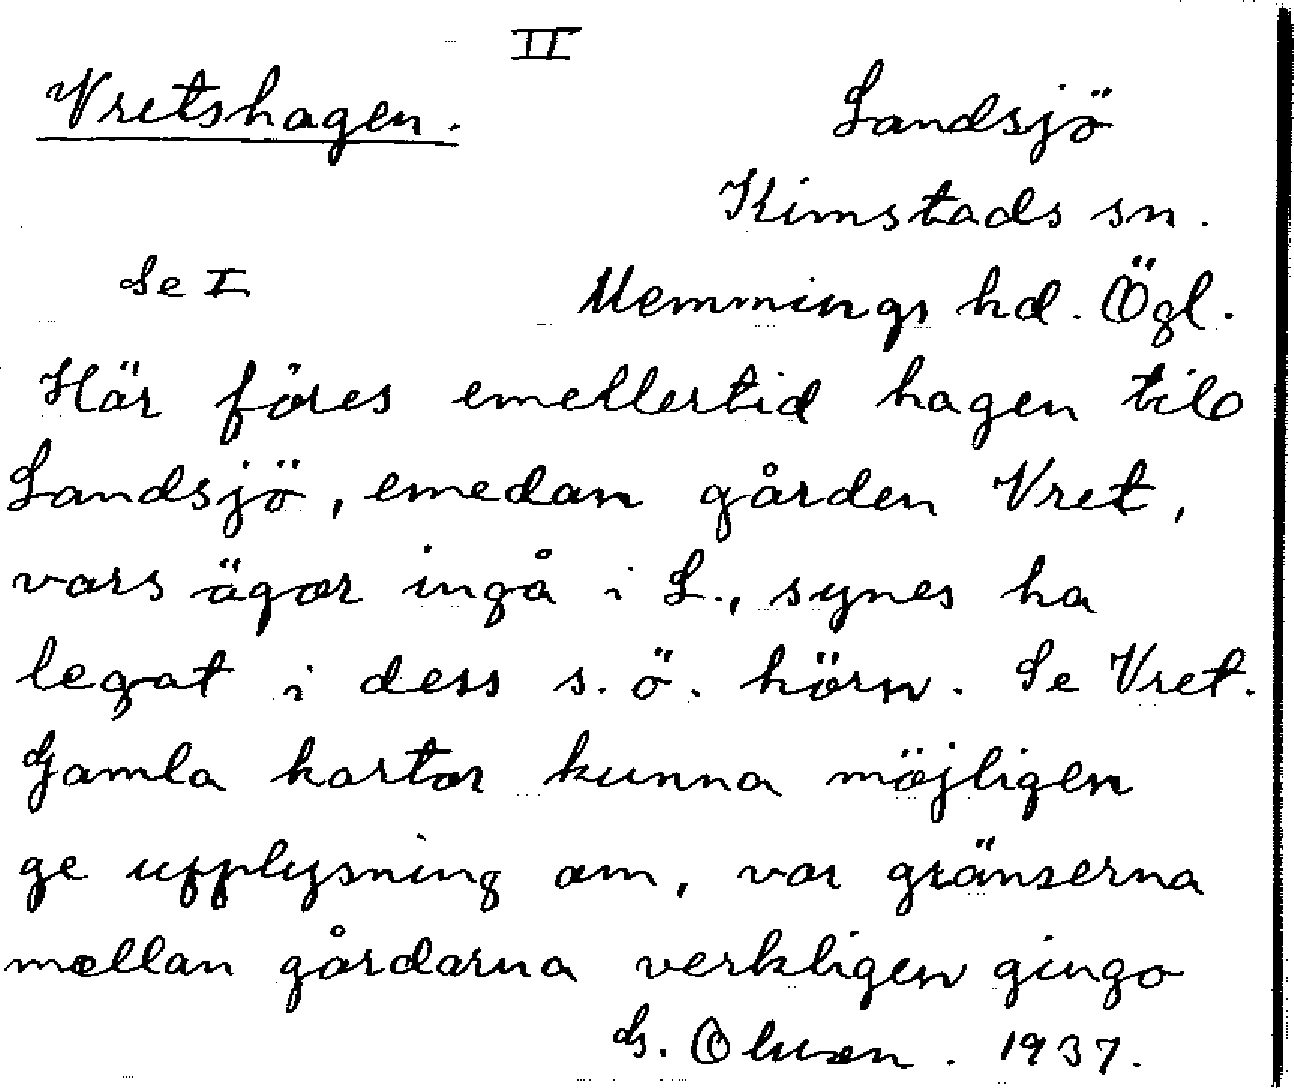 II
Vretshagen. Landsjö
Kimstads sn.
Se I Memmings hd. Ögl.
Här föres emellertid hagen till
Landsjö, emedan gården Vret,
vars ägor ingå i L., synes ha
legat i dess s. ö. hörn. Se Vret.
Gamla kartor kunna möjligen
ge upplysning om, var gränserna
mellan gårdarna verkligen gingo
1937.